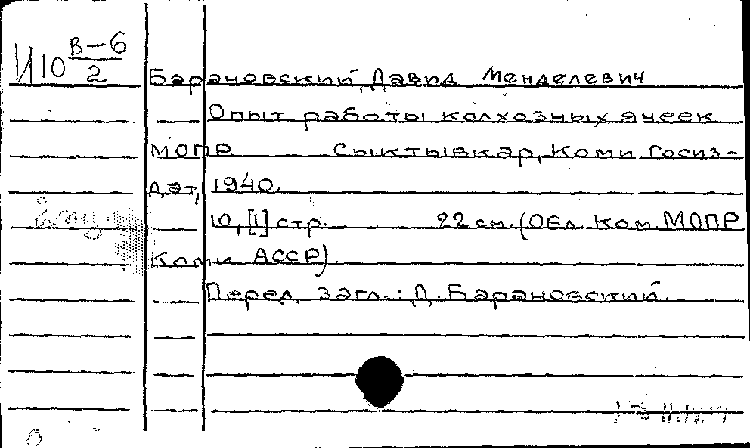 И10 В-6/2
Барановский, Давид Менделевич
Опыт работы колхозных ячеек
МОПР. Сыктывкар, Коми Госиз-
дат, 1940.
10, [1] стр. 22 см. (Обл. Ком. МОПР
Коми АССР)
Перед загл.: Д. Барановский.